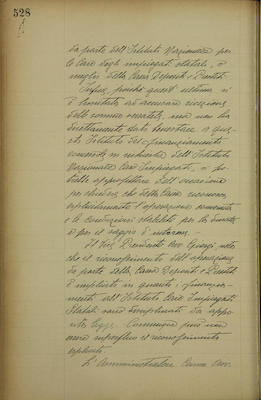 528
da parte dell'Istituto Nazionale per
le Case degli impiegati statali, o
meglio della Cassa Depositi e Prestiti.
Infine, poiché quest'ultima si
è limitata ad accusare ricezione
dell'somme versatele, ma non ha
direttamente dato benestare a que-
sto Istituto del finanziamento
concesso su richiesta dell'Istituto
Nazionale Case Impiegati, si po-
trebbe approfittare dell'occasione
per chiedere che detta Cassa riconosca
esplicitamente l'operazione avvenuta
e le condizioni stabilite per la durata
e per il saggio d'interesse.
Il Vice Presidente Avv. Giorgi nota
che il riconoscimento dell'operazione
da parte della Cassa Depositi e Prestiti
è implicito in quanto i finanzia-
menti all'Istituto Case Impiegati
Statali sono contemplati da appo-
sita legge. Comunque può non
essere superfluo il riconoscimento
esplicito.
L'Amministratore Avv.